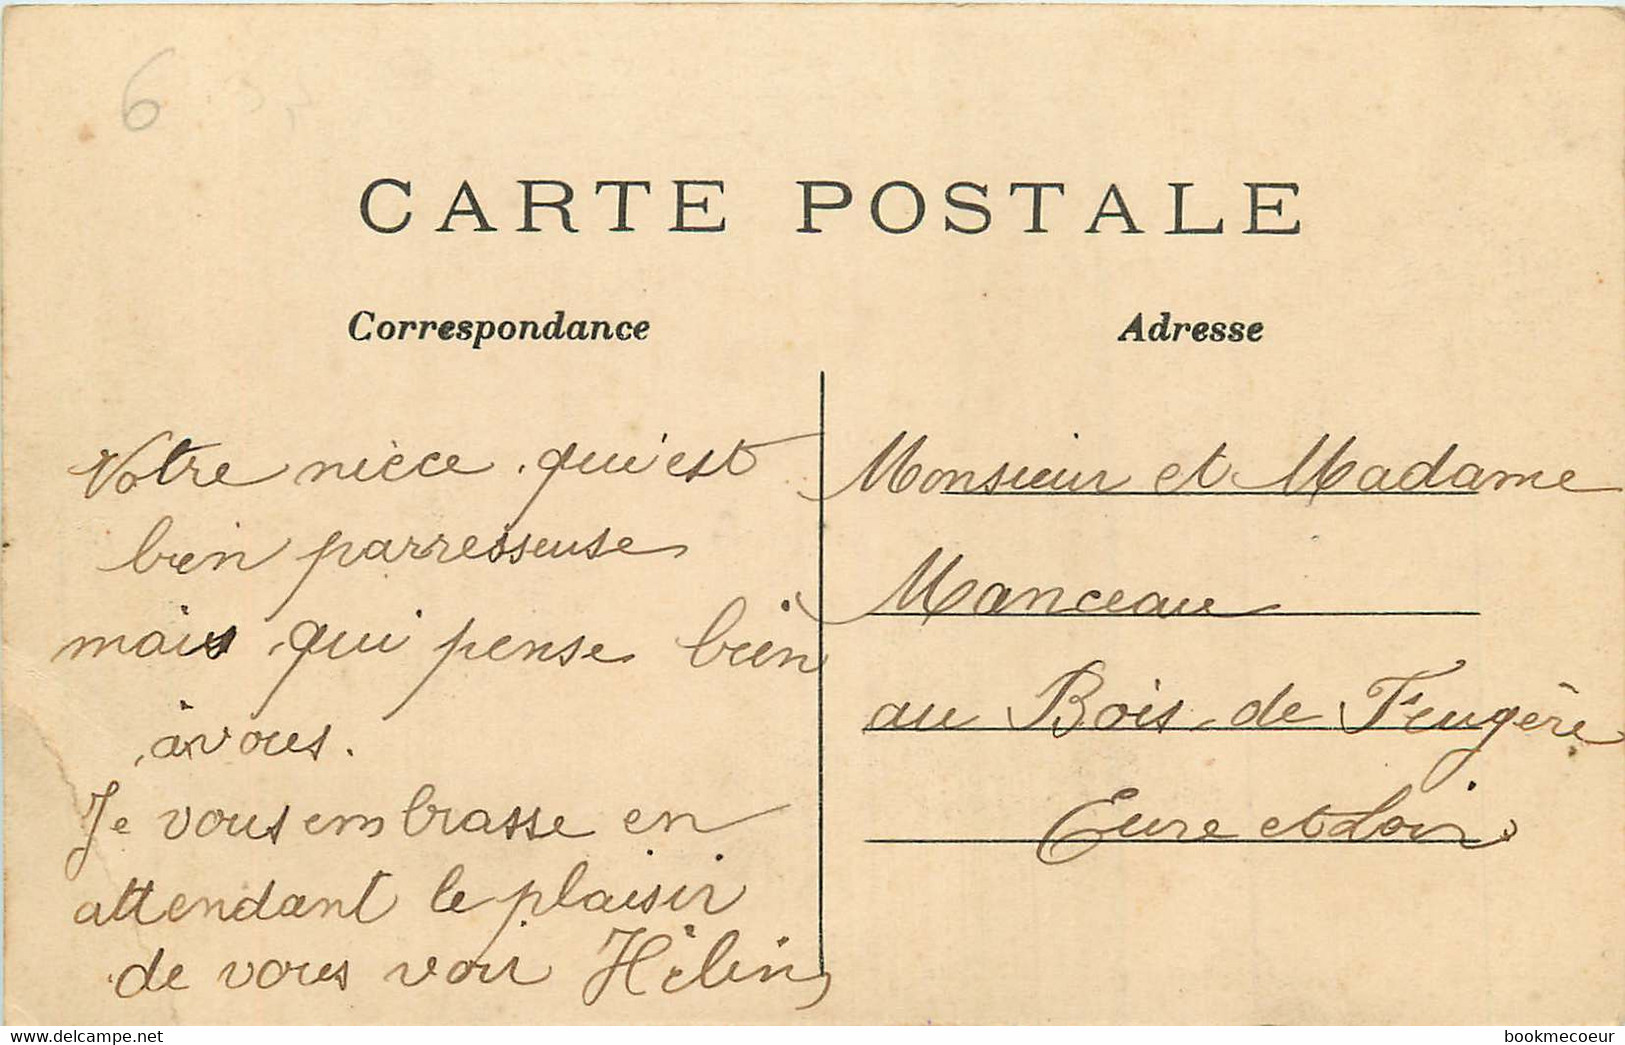 6
CARTE POSTALE
Correspondance
Votre nièce qui'est
bien parresseuse
mais qui pense bien
à vous.
Je vous embrasse en
attendant le plaisir
de vous voir
Adresse
Monsieur et Madame
Manceau
au Bois de Feugère
Eure et Loir
www.delcampe.net
bookmecoeur